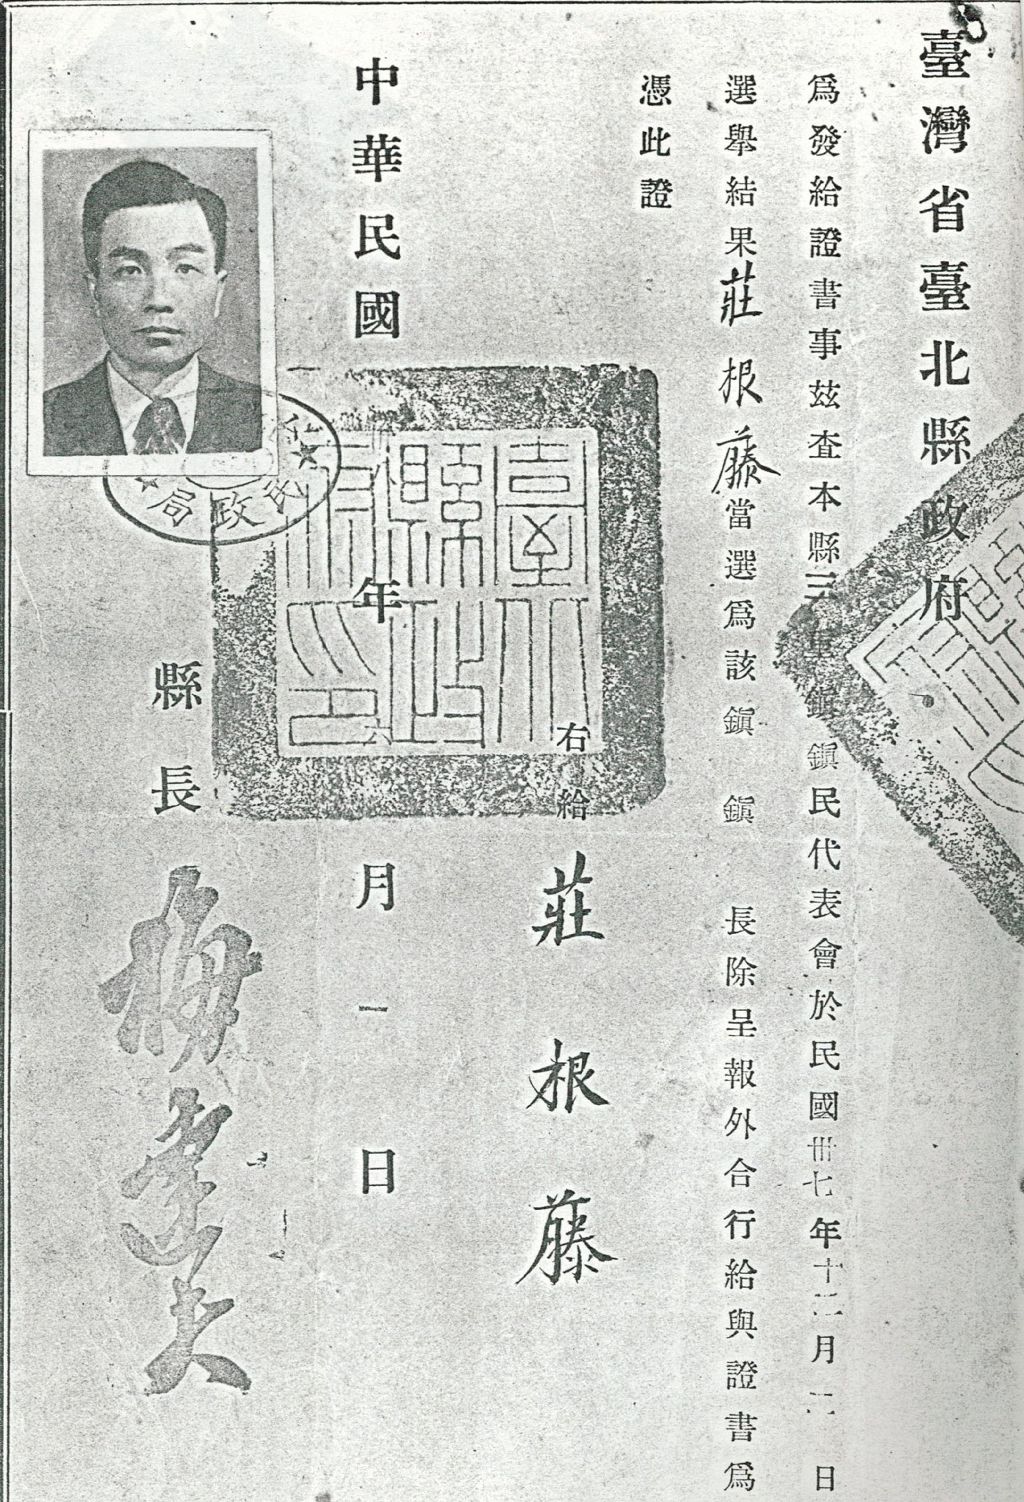 臺灣省臺北縣政府
為發給證書事茲查本縣三重鎮鎮民代表會於民國卅七年十二月二日
選舉結果莊根藤當選為該鎮鎮長除呈報外合行給與證書為
憑此證
右給莊根藤
中華民國年六月一日
縣長梅達夫
臺北縣政府印
民政局